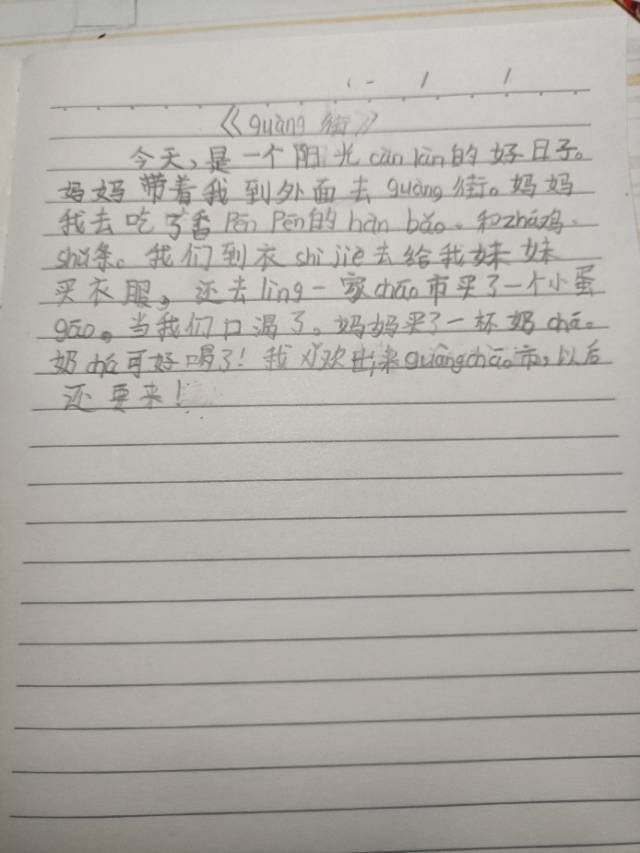 《guàng 街》
今天,是一个阳光càn làn的好日子。
妈妈带着我到外面去guàng街。妈妈
我去吃了香Pēn Pēn的hàn bǎo、和zhá鸡
shǔ条。我们到衣shì jiè去给我妹妹
买衣服,还去lìng一家chāo市买了一个小蛋
gāo。当我们口渴了。妈妈买了一杯奶chá。
奶chá可好喝了!我喜欢出来guàngchāo市,以后
还要来!